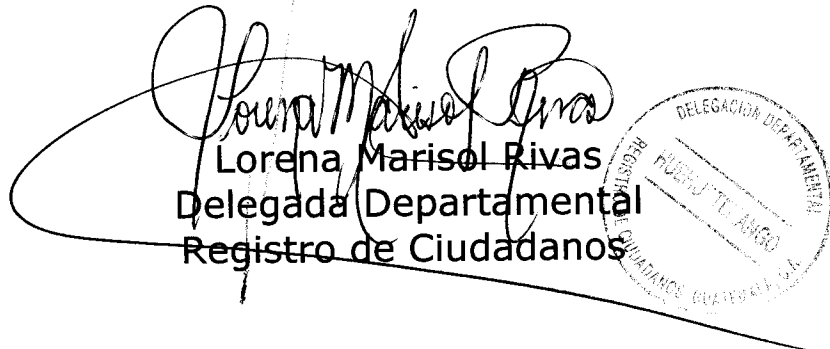 Lorena Marisol Rivas
Lorena Marisol Rivas
Delegada Departamental
Registro de Ciudadanos
DELEGACIÓN DEPARTAMENTAL
HUEHUETENANGO
REGISTRO DE CIUDADANOS GUATEMALA, C.A.